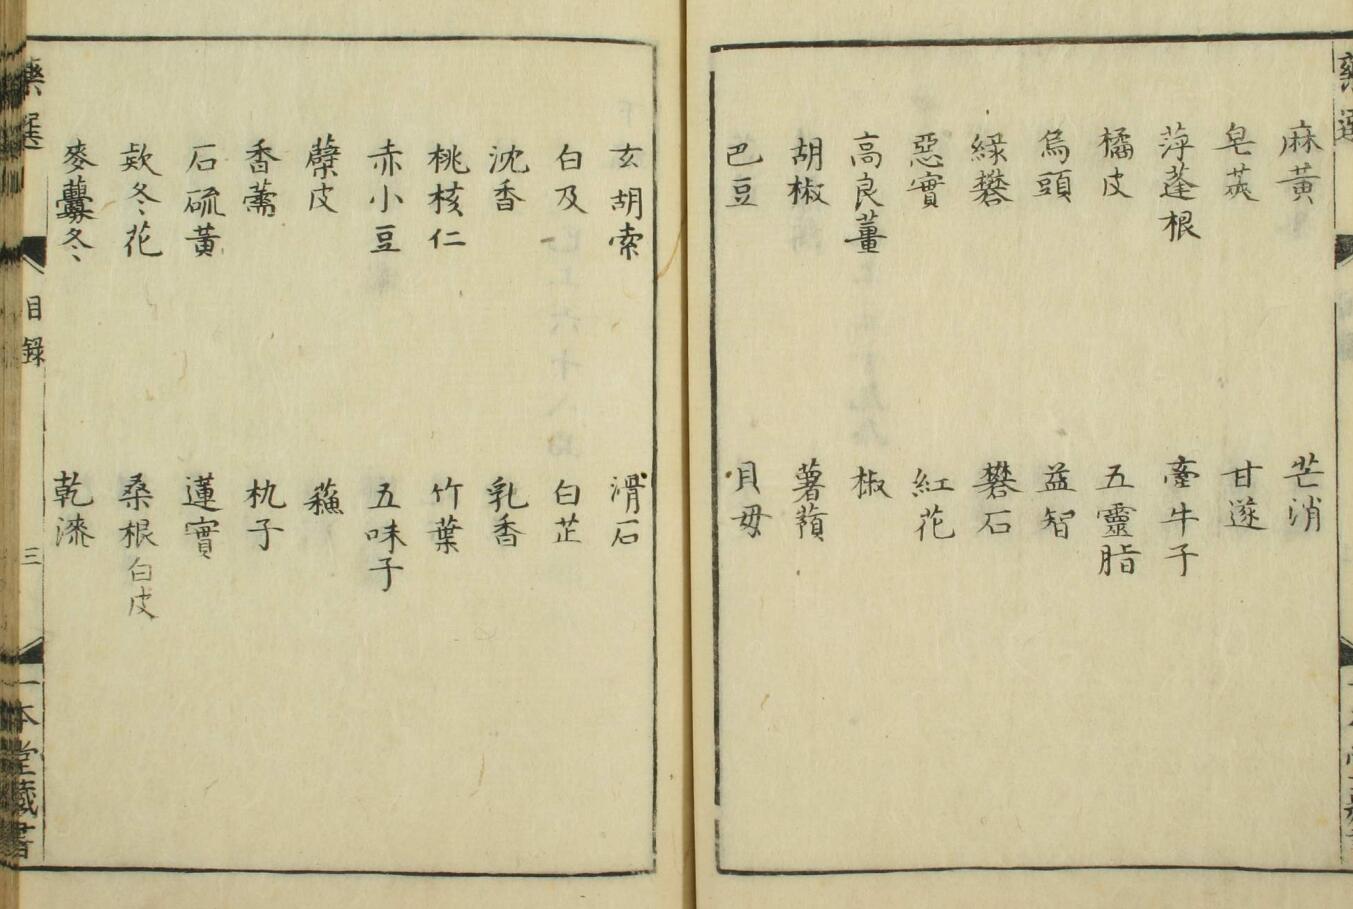 麻黃 芒消
皂莢 甘遂
萍蓬根 牽牛子
橘皮 五靈脂
烏頭 益智
綠礬 礬石
惡實 紅花
高良薑 椒
胡椒 薯蕷
巴豆 貝母
玄胡索 滑石
白及 白芷
沈香 乳香
桃核仁 竹葉
赤小豆 五味子
蘗皮 蘓
香薷 朹子
石硫黃 蓮實
欵冬花 桑根白皮
麥虋冬 乾漆
藥選 目録 三 一本堂藏書